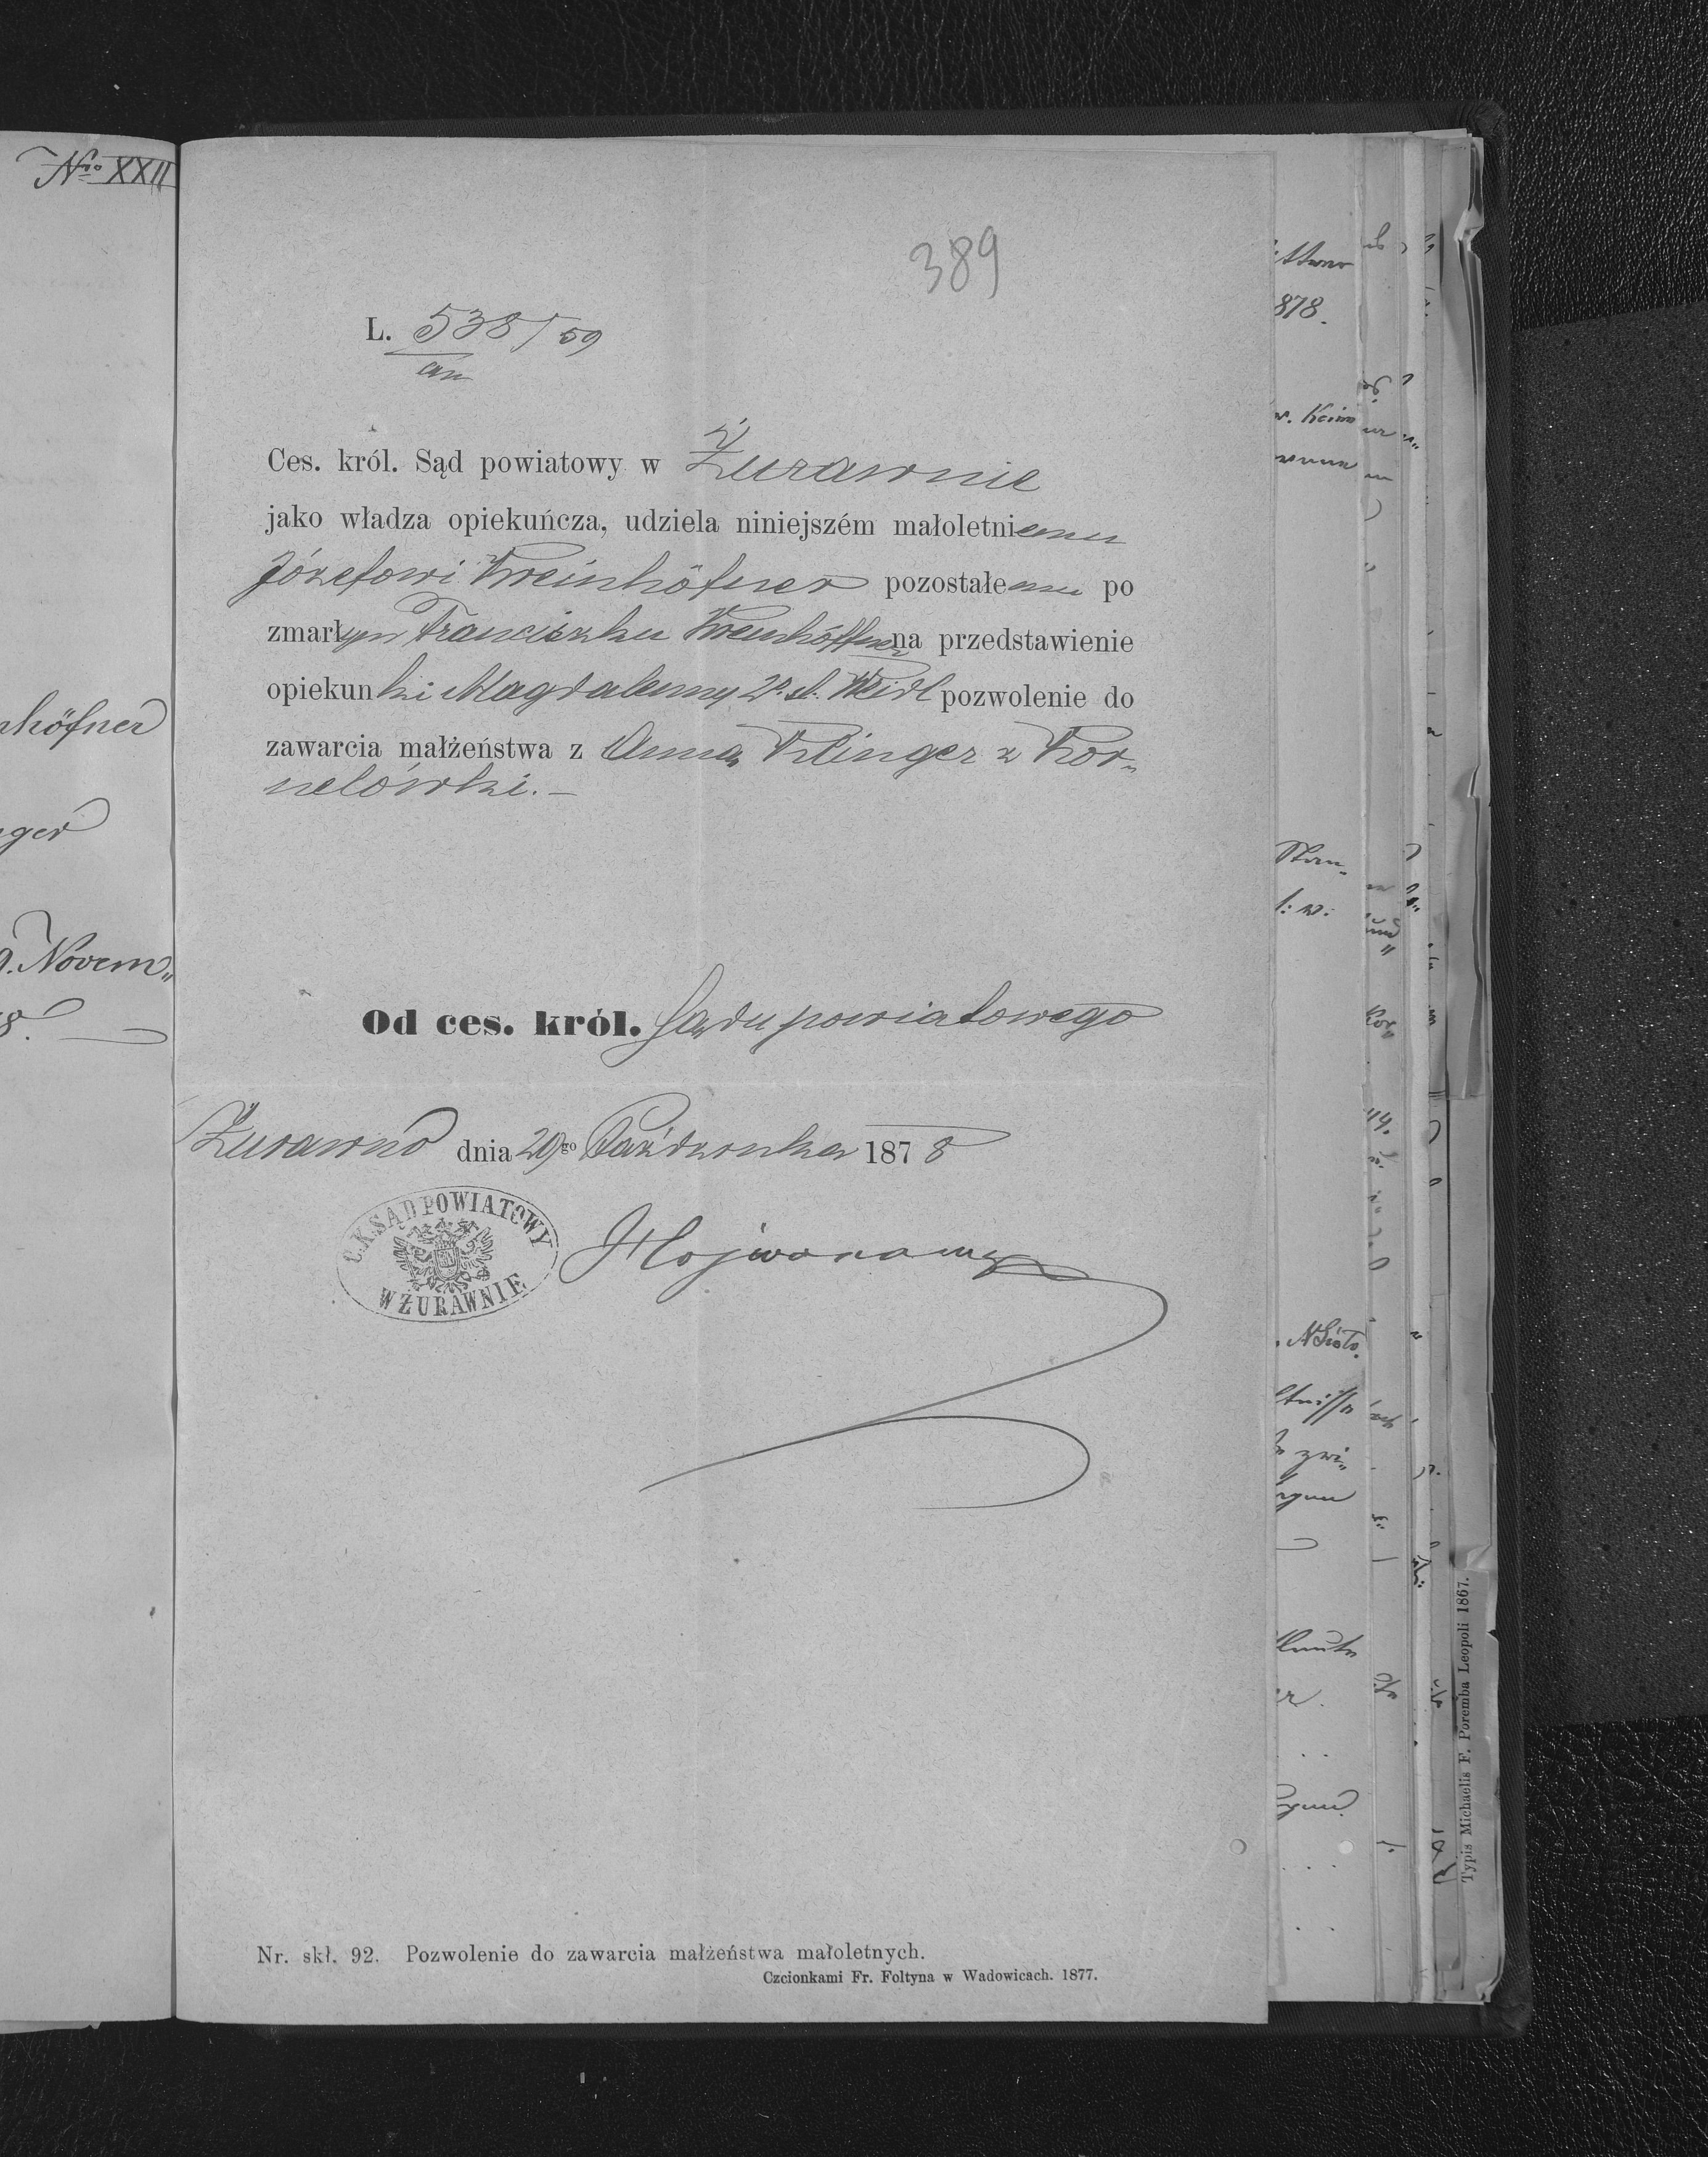 Nro XXII
389
L. 538/59
an
Ces. król. Sąd powiatowy w Żurawnie
jako władza opiekuńcza, udziela niniejszém małoletniemu
Józefowi Weinhöfner pozostałemu po
zmarłym Franciszku Weinhöffner na przedstawienie
opiekunki Magdaleny 2º śl. Weidl pozwolenie do
zawarcia małżeństwa z Anną Klinger z Kor„
nelówki.—
Od ces. król. Sądu powiatowego
Żurawno dnia 29go Października 1878
C.K.SĄD POWIATOWY
W ŻURAWNIE
Nr. skł. 92. Pozwolenie do zawarcia małżeństwa małoletnych.
Czcionkami Fr. Foltyna w Wadowicach. 1877.
höfner
ger
9. Novem„
8.
878.
Typis Michaelis F. Poremba Leopoli 1867.